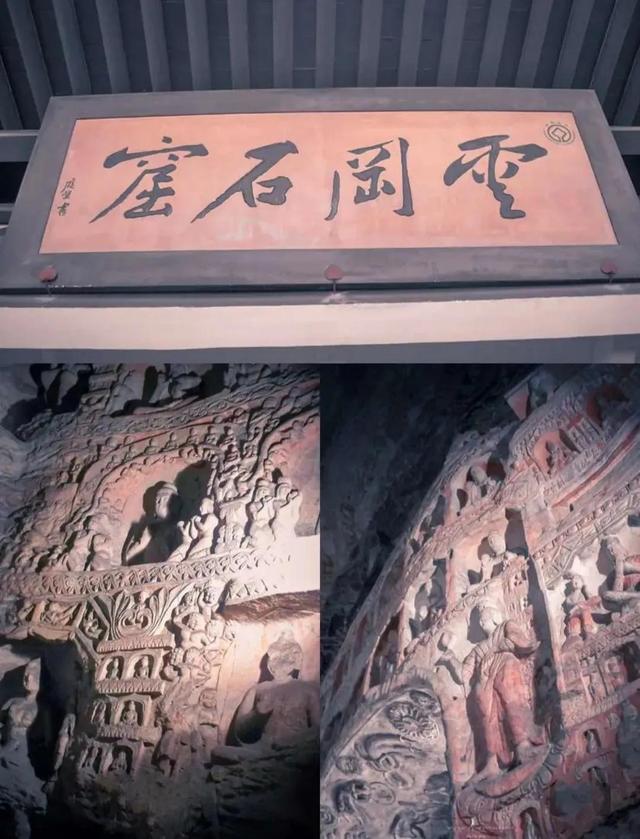 雲岡石窟